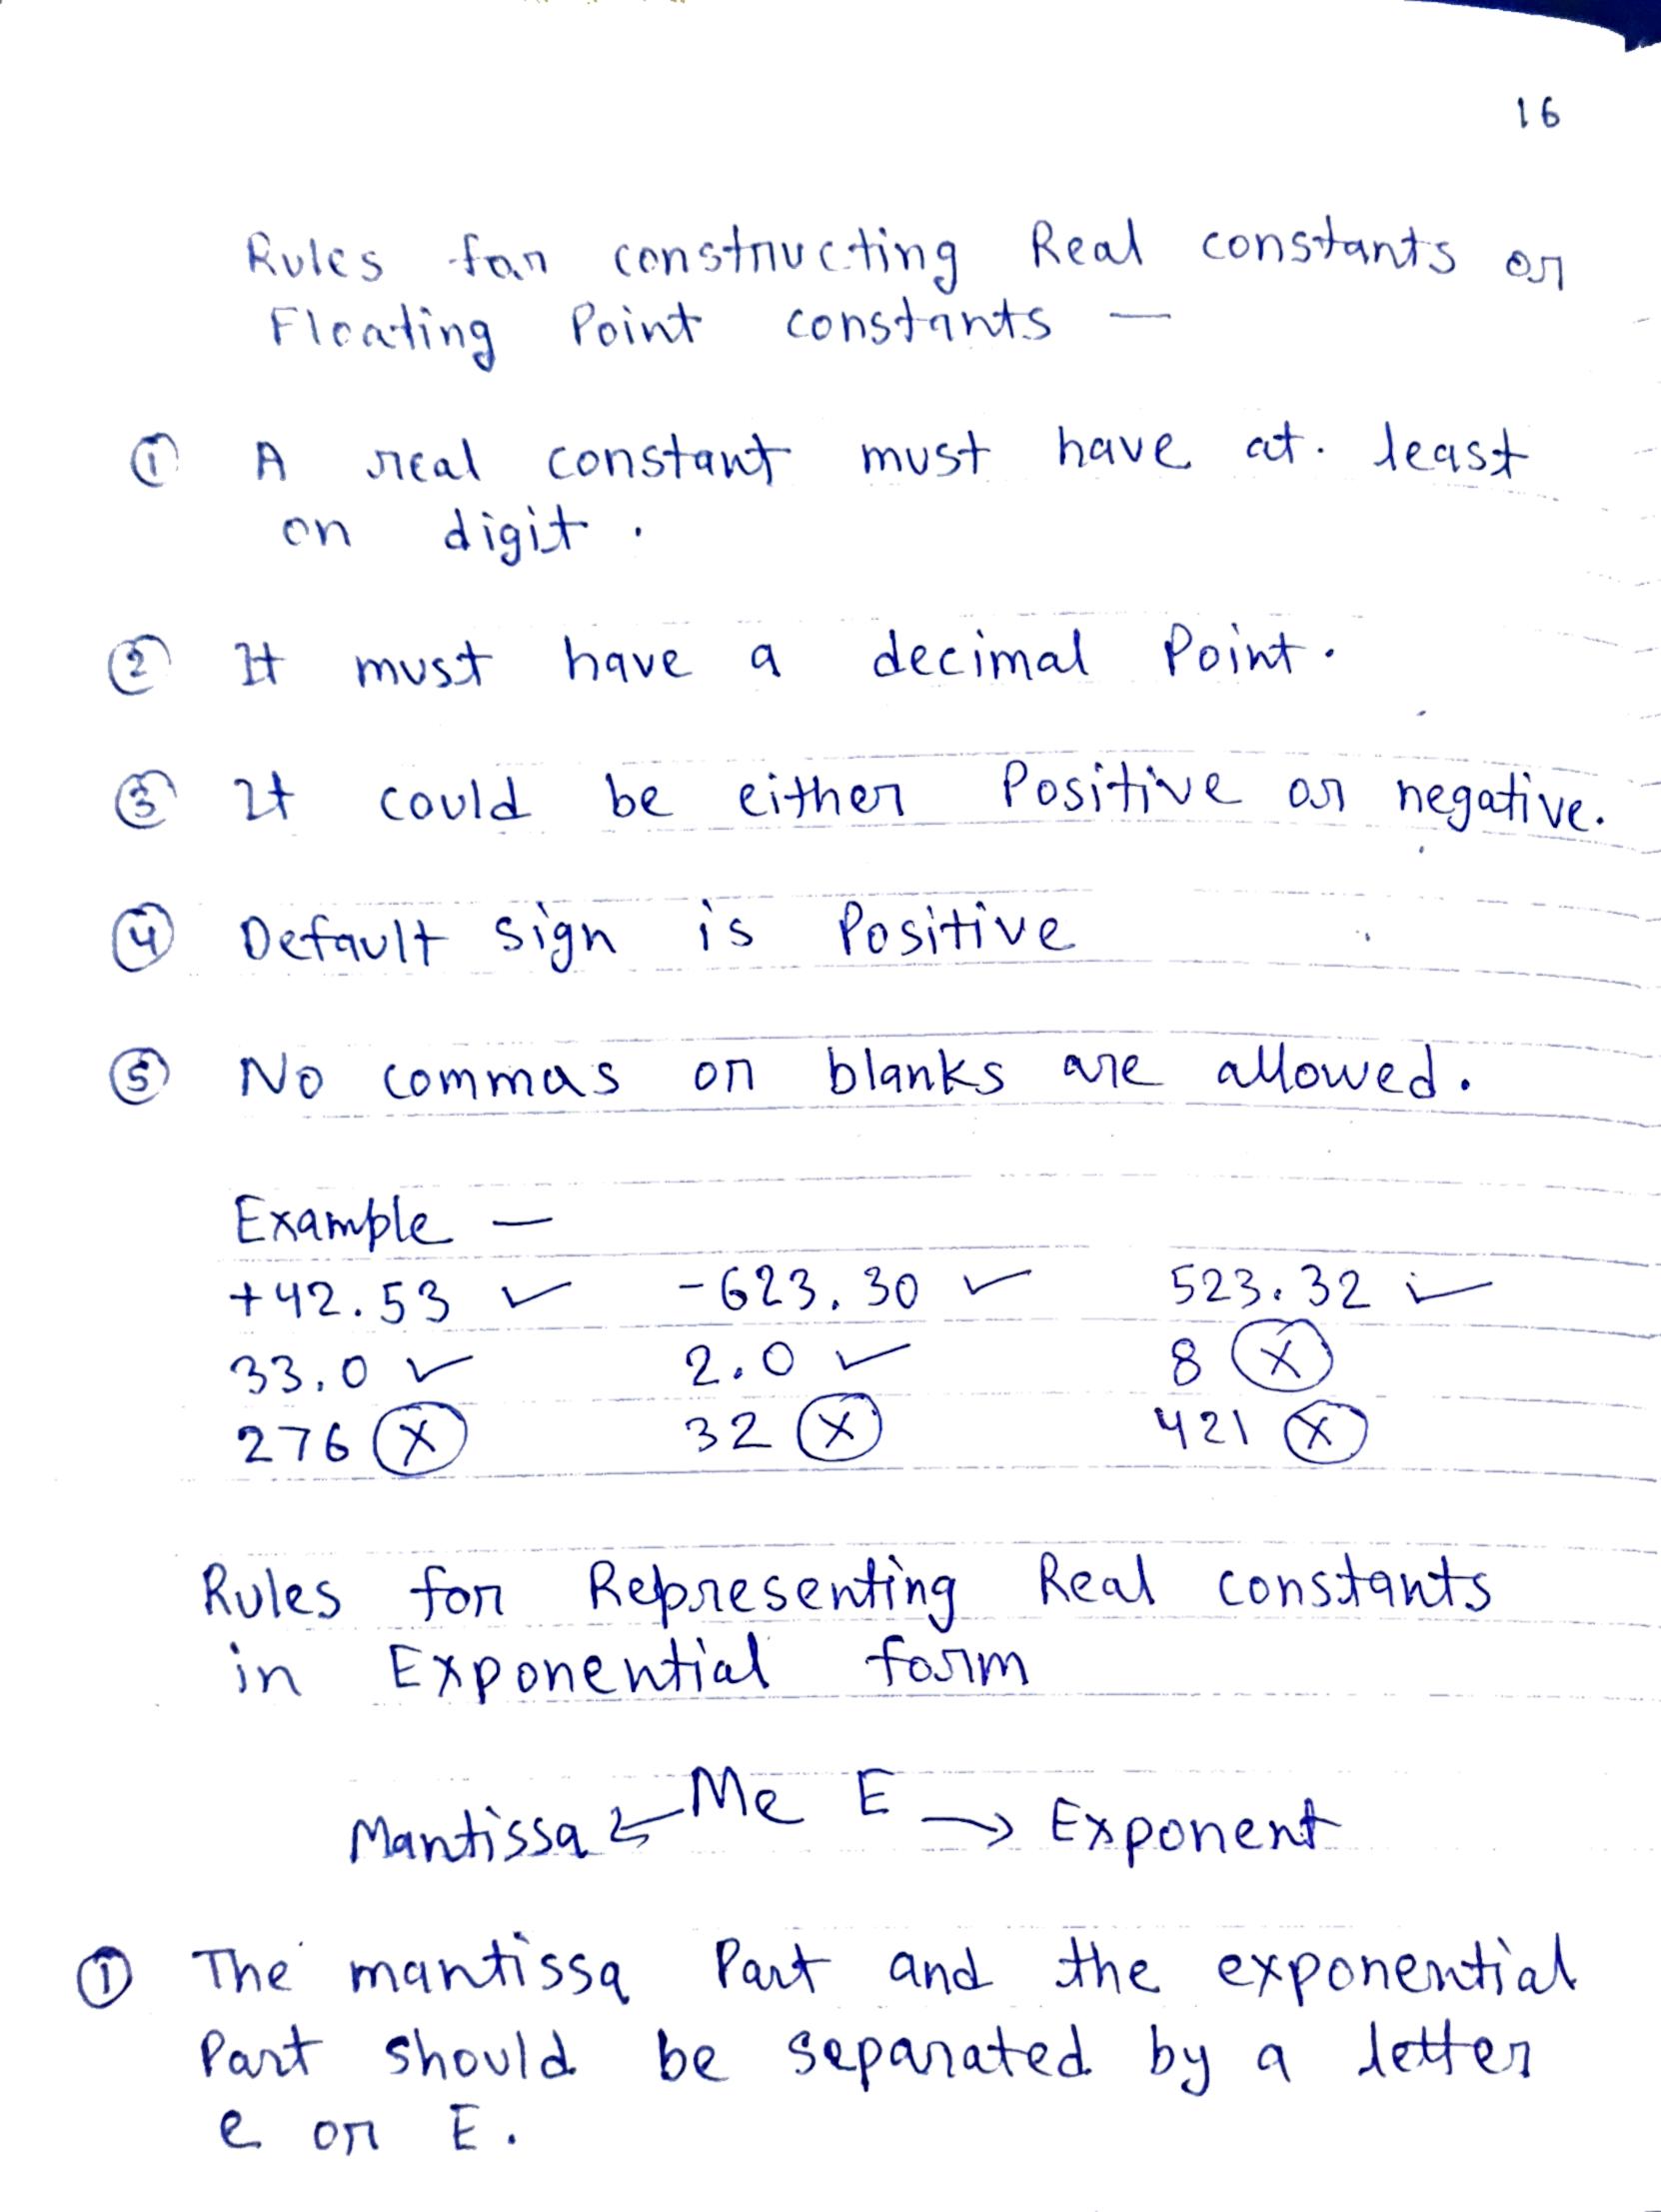 16
Rules for constructing Real constants or
Floating Point constants —
① A real constant must have at. least
on digit.
② It must have a decimal Point.
③ It could be either Positive or negative.
④ Default sign is Positive
⑤ No commas or blanks are allowed.
Example —
+42.53 ✓ -623.30 ✓ 523.32 ✓
33.0 ✓ 2.0 ✓ 8 ⓧ
276 ⓧ 32 ⓧ 421 ⓧ
Rules for Representing Real constants
in Exponential form
Mantissa ← Me E → Exponent
① The mantissa Part and the exponential
Part should be separated by a letter
e or E.